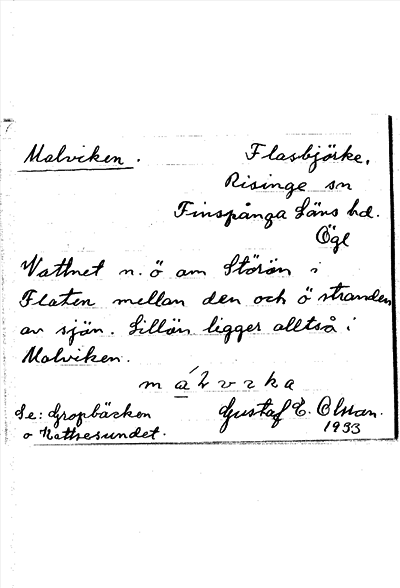 Malviken.
Flasbjörke,
Risinge sn
Finspånga Läns hd.
Ögl
Vattnet n. ö am Störön i
Flaten mellan den och ö stranden
av sjön. Lillön ligger alltså i
Malviken.
Se: Gropbäcken
o Kattsesundet.
Gustaf E. Olsson.
1933